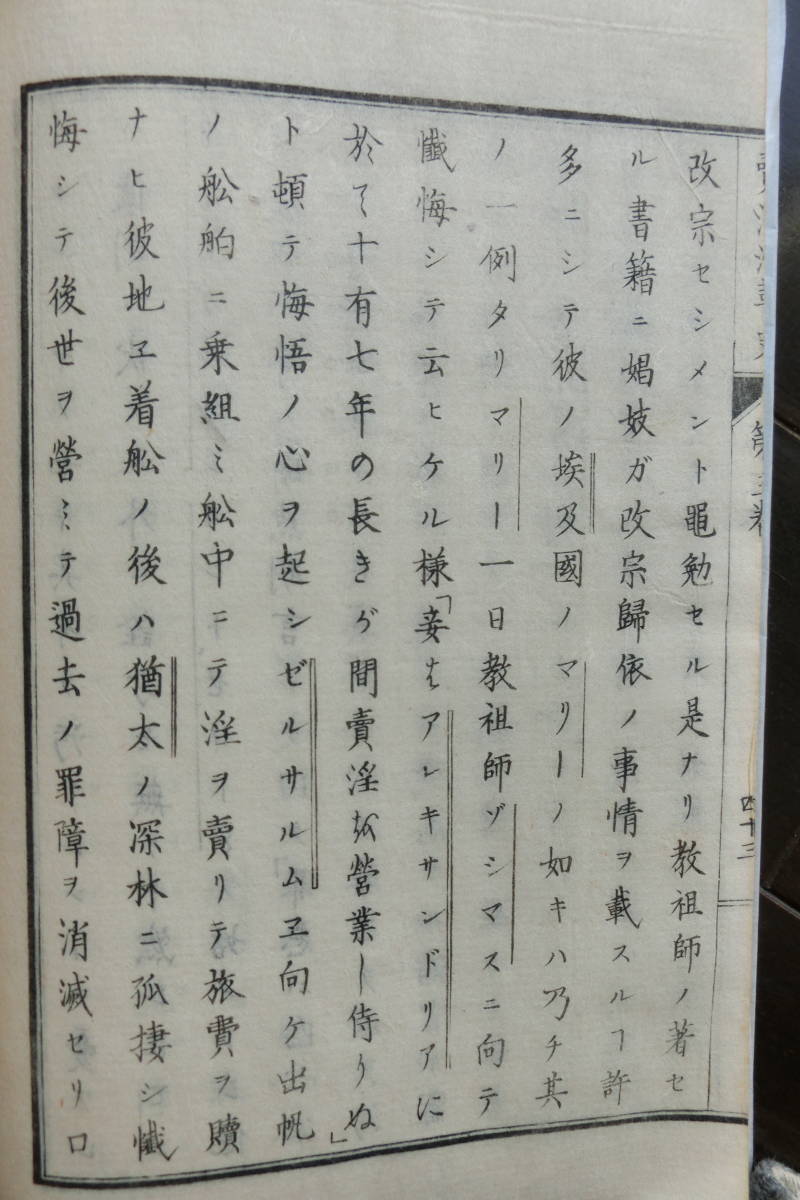 改宗セシメント黽勉セル是ナリ教祖師ノ著セ
ル書籍ニ娼妓ガ改宗歸依ノ事情ヲ載スルヿ許
多ニシテ彼ノ埃及國ノマリーノ如キハ乃チ其
ノ一例タリマリー一日教祖師ゾシマスニ向テ
懺悔シテ云ヒケル様「妾はアレキサンドリアに
於て十有七年の長きが間賣淫を營業し侍りぬ」
ト頓テ悔悟ノ心ヲ起シゼルサルムヱ向ケ出帆
ノ舩舶ニ乗組ミ舩中ニテ淫ヲ賣リテ旅費ヲ贖
ナヒ彼地ヱ着舩ノ後ハ猶太ノ深林ニ孤捿シ懺
悔シテ後世ヲ營ミテ過去ノ罪障ヲ消滅セリロ
四十三